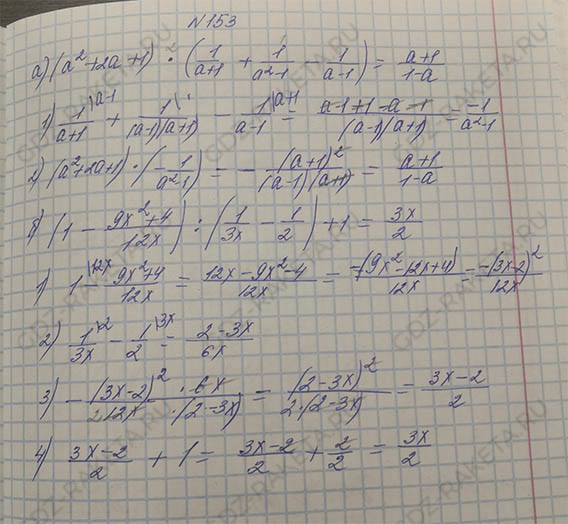 N153
а) (a²+2a+1) · (1/(a+1) + 1/(a²-1) - 1/(a-1)) = (a+1)/(1-a)
1) 1/(a+1) \a-1 + 1/((a-1)(a+1)) \1 - 1/(a-1) \a+1 = (a-1+1-a-1)/((a-1)(a+1)) = -1/(a²-1)
2) (a²+2a+1) · (-1/(a²-1)) = - (a+1)²/((a-1)(a+1)) = (a+1)/(1-a)
б) (1 - (9x²+4)/12x) : (1/3x - 1/2) + 1 = 3x/2
1) 1 \12x - (9x²+4)/12x = (12x-9x²-4)/12x = -(9x²-12x+4)/12x = -(3x-2)²/12x
2) 1/3x \2 - 1/2 \3x = (2-3x)/6x
3) - (3x-2)² · 6x/(2 12x · (2-3x)) = (2-3x)²/(2·(2-3x)) = (3x-2)/2
4) (3x-2)/2 + 1 = (3x-2)/2 + 2/2 = 3x/2
GDZ-RAKETA.RU